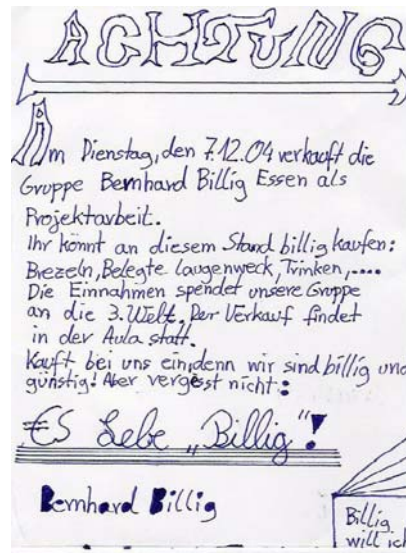 ACHTUNG
Am Dienstag, den 7.12.04 verkauft die
Gruppe Bernhard Billig Essen als
Projektarbeit.
Ihr könnt an diesem Stand billig kaufen:
Brezeln, Belegte Laugenweck, Trinken,....
Die Einnahmen spendet unsere Gruppe
an die 3. Welt. Der Verkauf findet
in der Aula statt.
Kauft bei uns ein, denn wir sind billig und
günstig! Aber vergesst nicht:
€S Lebe „Billig"!
Bernhard Billig
Billig
will ich